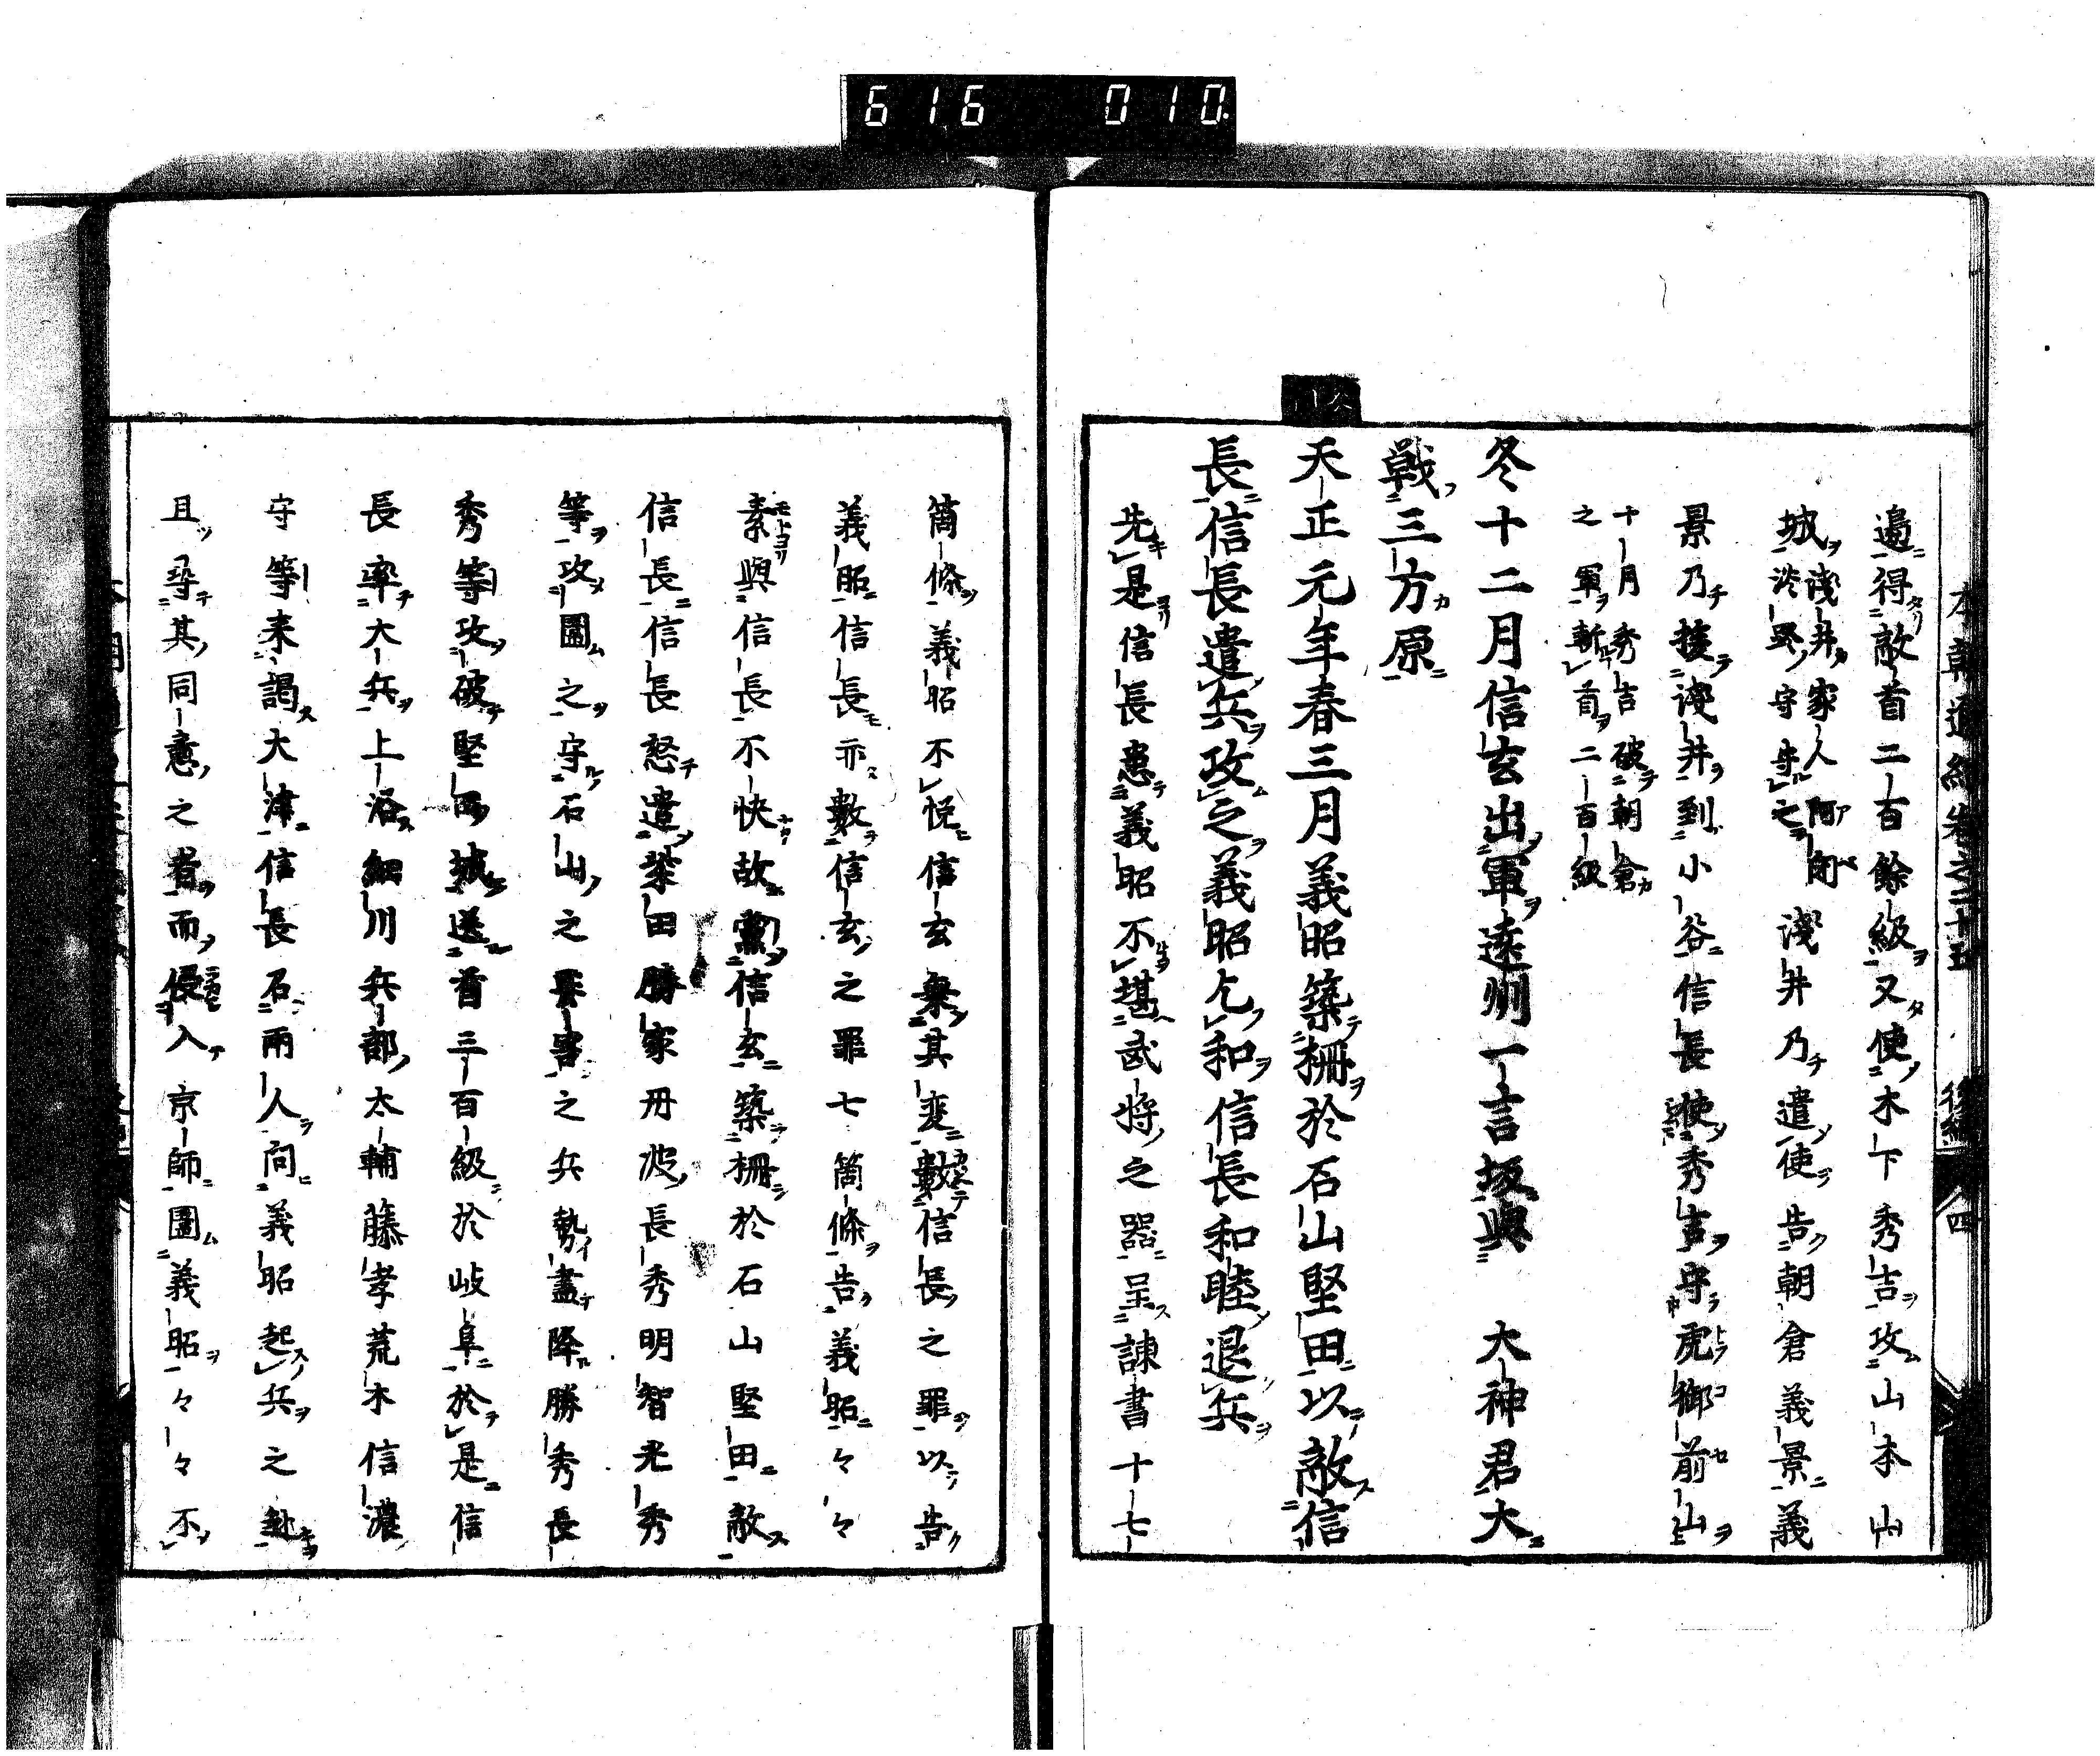 616 010
本朝通紀卷之二十五 後編 四
邉得敵首二百餘級又使木下秀吉攻山本山
城淺井家人阿閉淡路守守之淺井乃遣使告朝倉義景義
景乃援淺井到小谷信長使秀吉守虎御前山
十月秀吉破朝倉
之軍斬首二百級
冬十二月信玄出軍遠州一言坂與 大神君大
戦三方原
天正元年春三月義昭築柵於石山堅田以敵信
長信長遣兵攻之義昭乞和信長和睦退兵
先是信長患義昭不堪武将之器呈諌書十七
箇條義昭不悦信玄乗其変數信長之罪以告
義昭信長亦數信玄之罪七箇條告義昭々々
素與信長不快故黨信玄築柵於石山堅田敵
信長信長怒遣柴田勝家丹波長秀明智光秀
等攻圍之守石山之兵勢盡降勝秀長
秀等攻破堅田城送首三百級於岐阜於是信
長率大兵上洛細川兵部太輔藤孝荒木信濃
守等来謁大津信長召兩人問義昭起兵之
且尋其同意之者而侵入京師圍義昭々々不